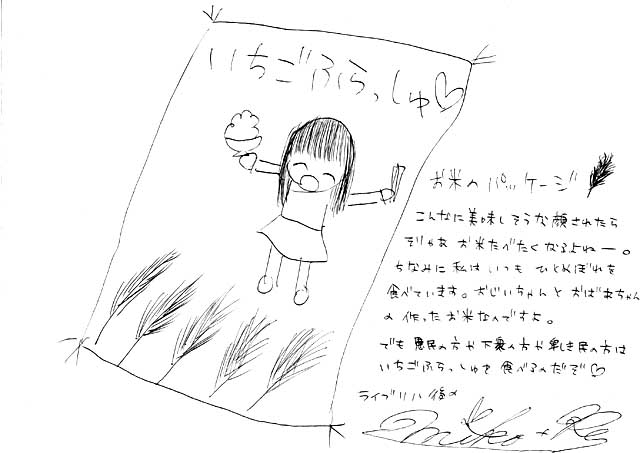 いちごふらっしゅ♡
お米のパッケージ
こんなに美味しそうな顔されたら
そりゃあ お米たべたくなるよねー。
ちなみに私は いつも ひとめぼれを
食べています。おじいちゃんと おばあちゃん
の 作ったお米なのですよ。
でも 愚民の方や下衆の方や卑しき民の方は
いちごふらっしゅを 食べるのだぞ♡
ライブツリ後〆